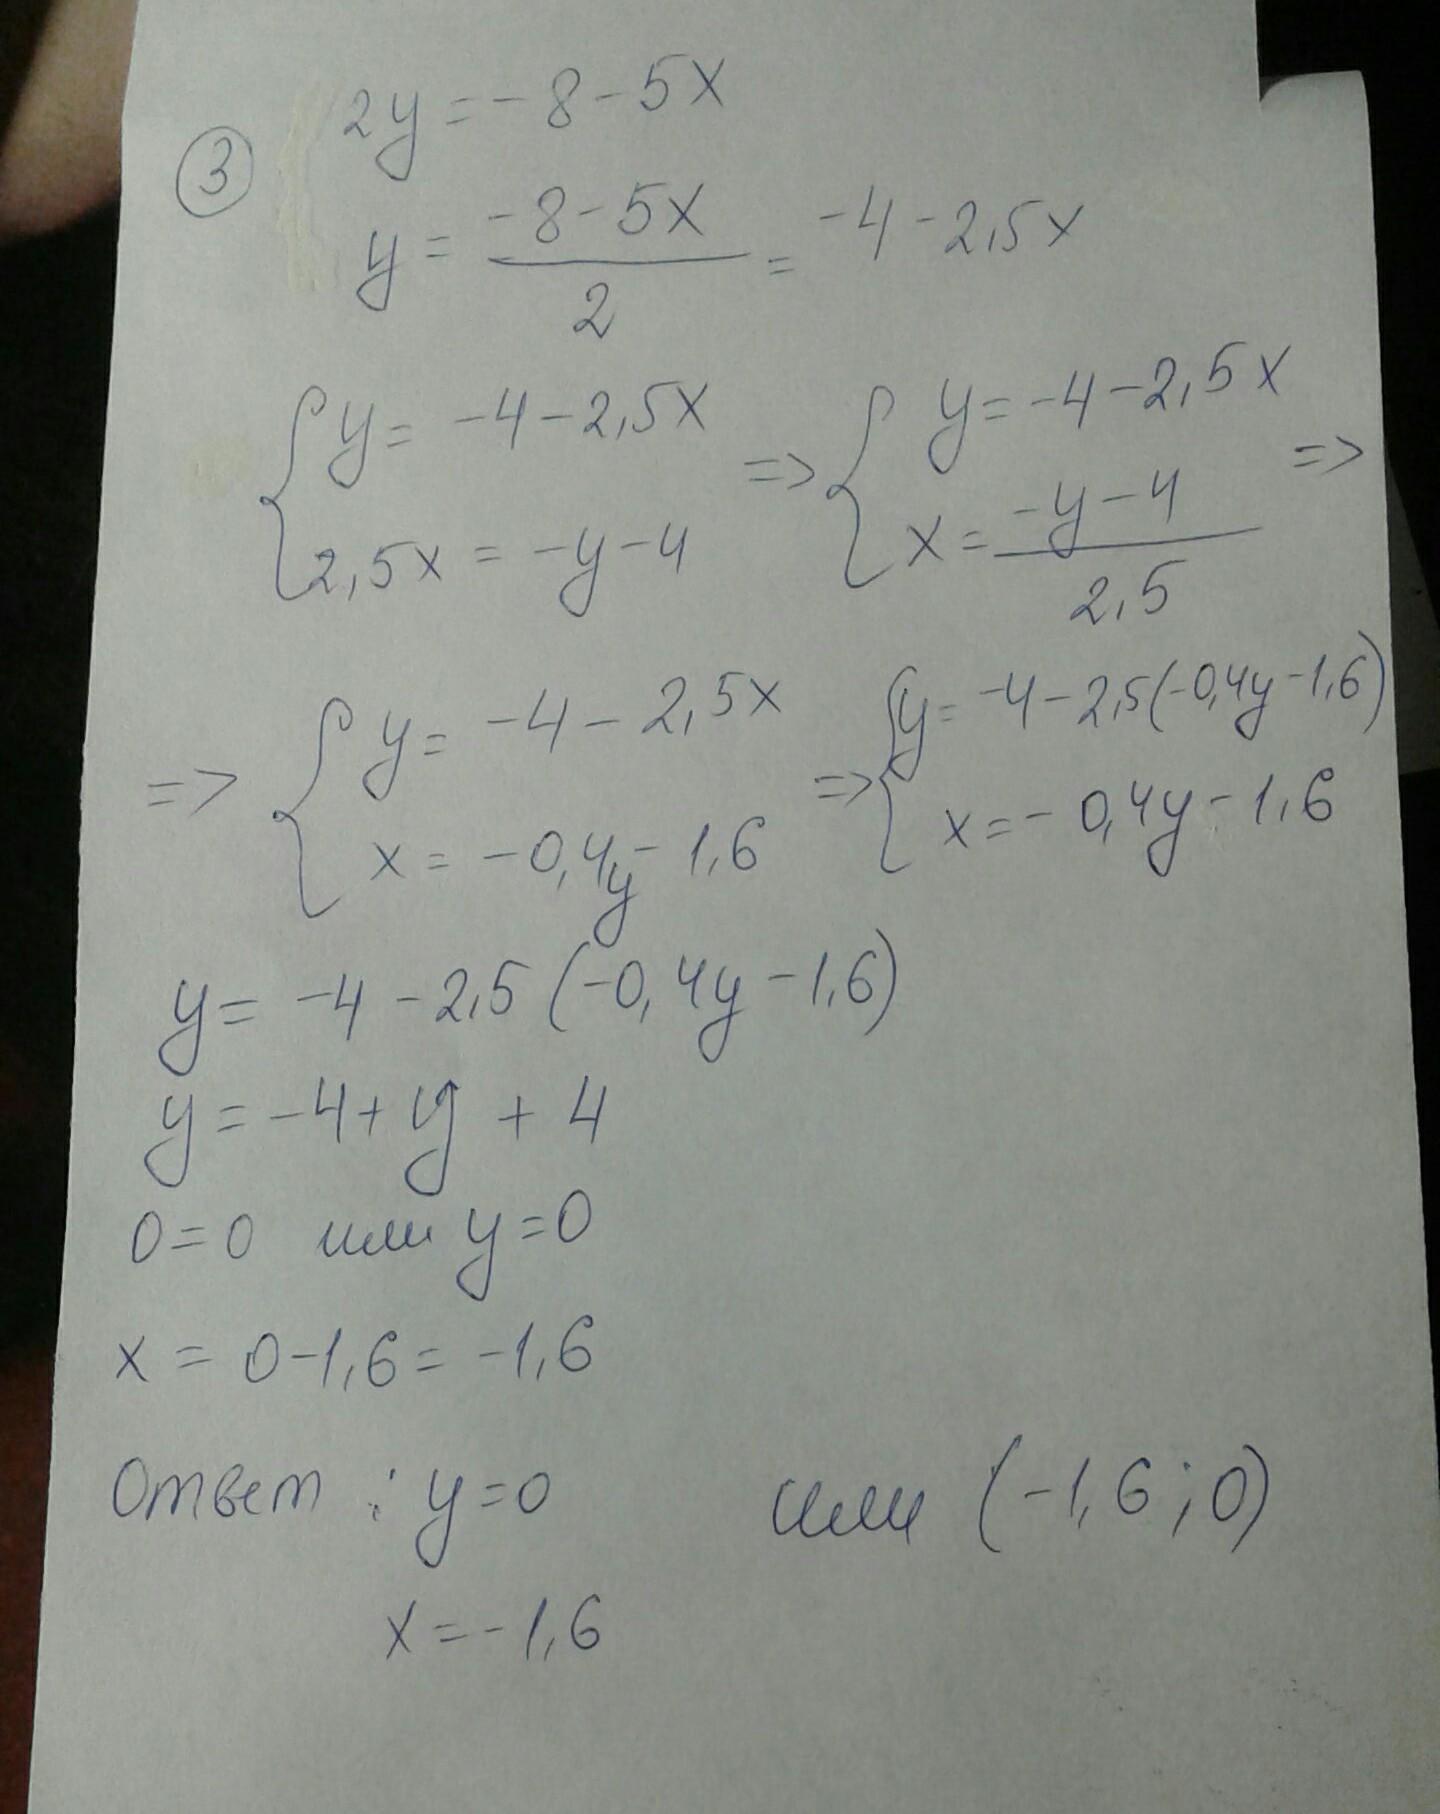 ③ 2y = -8 - 5x
y = (-8 - 5x)/2 = -4 - 2,5x
{ y = -4 - 2,5x => { y = -4 - 2,5x =>
2,5x = -y - 4 x = (-y - 4)/2,5
=> { y = -4 - 2,5x => { y = -4 - 2,5(-0,4y - 1,6)
x = -0,4y - 1,6 x = -0,4y - 1,6
y = -4 - 2,5 (-0,4y - 1,6)
y = -4 + y + 4
0 = 0 или y = 0
x = 0 - 1,6 = -1,6
Ответ : y = 0 или (-1,6 ; 0)
x = -1,6